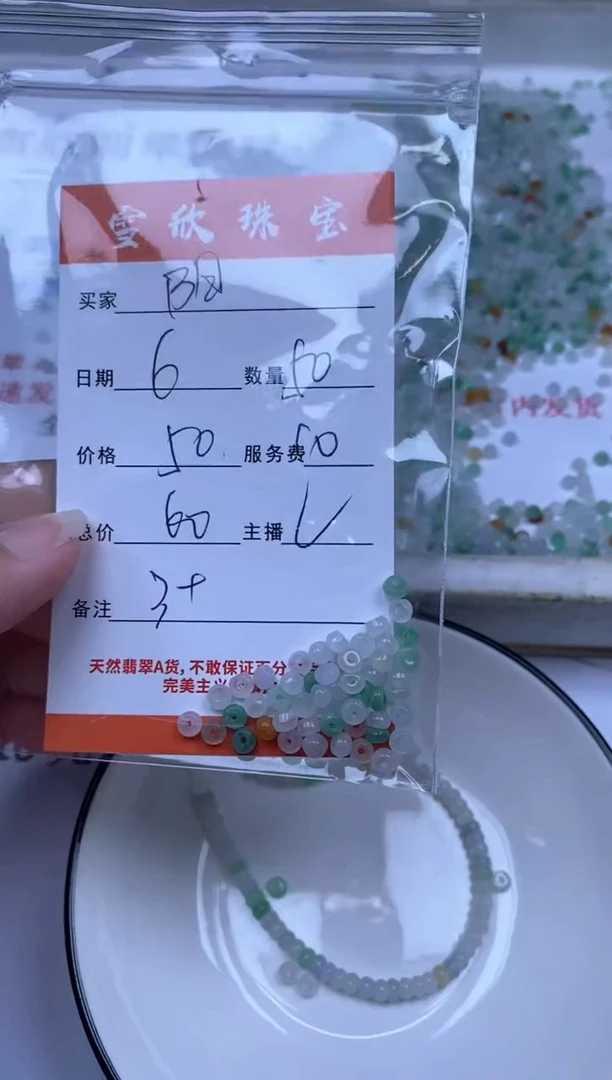 雪欣珠宝
买家
日期 6 数量 50
价格 50 服务费 10
总价 60 主播
备注 3+
天然翡翠A货,不敢保证百分
完美主义
内发货
速发